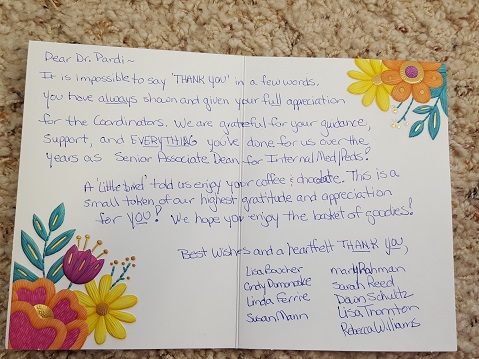 Dear Dr. Pardi~
It is impossible to say 'THANK YOU' in a few words.
You have always shown and given your full appreciation
for the Coordinators. We are grateful for your guidance,
support, and EVERYTHING you've done for us over the
years as Senior Associate Dean for Internal Med/Peds!
A 'little bird' told us enjoy your coffee & chocolate. This is a
small token of our highest gratitude and appreciation
for YOU! We hope you enjoy the basket of goodies!
Best Wishes and a heartfelt THANK YOU,
Lisa Boucher
Cindy
Linda Ferrie
Susan Mann
Mary Rahman
Sarah Reed
Dawn Schultz
Lisa Thornton
Rebecca Williams